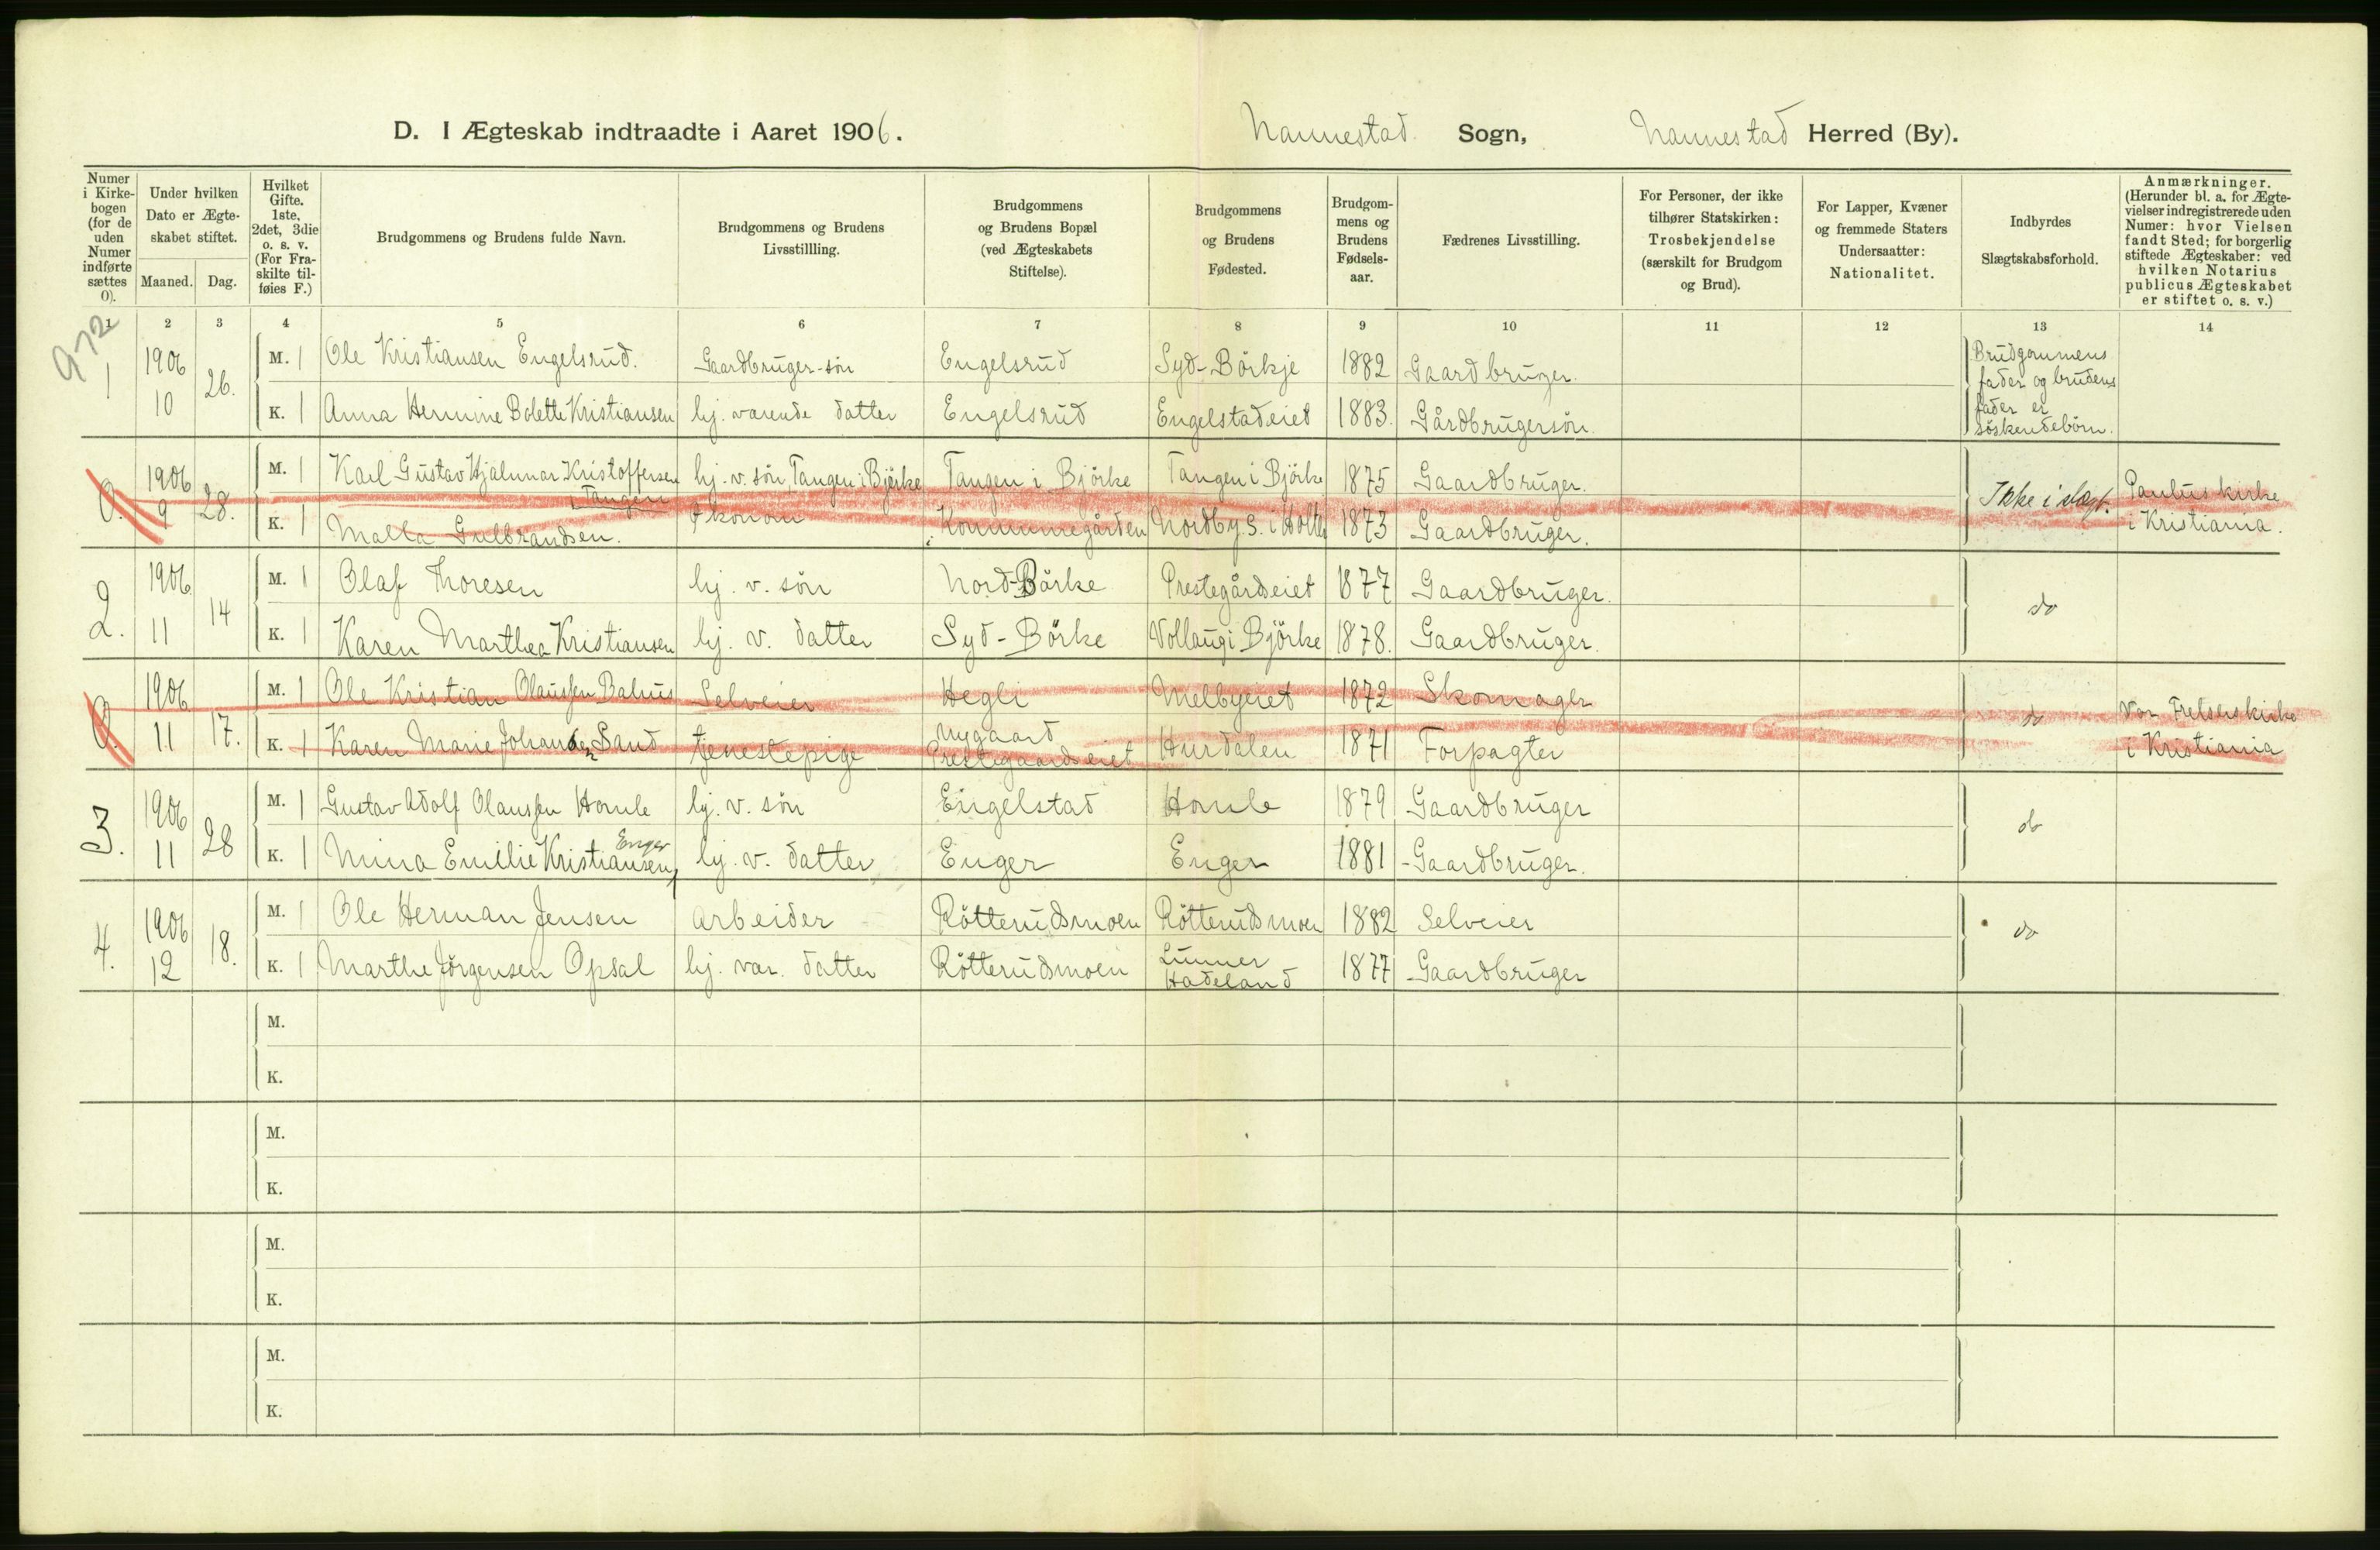 D. I Ægteskab indtraadte i Aaret 1906. Nannestad Sogn, Nannestad Herred (By).
Numer i Kirkebogen (for de uden Numer indførte sættes 0).
Under hvilken Dato er Ægteskabet stiftet.
Maaned. Dag.
Hvilket Gifte. 1ste, 2det, 3die o. s. v. (For Fraskilte tilføies F.)
Brudgommens og Brudens fulde Navn.
Brudgommens og Brudens Livsstillling.
Brudgommens og Brudens Bopæl (ved Ægteskabets Stiftelse).
Brudgommens og Brudens Fødested.
Brudgommens og Brudens Fødselsaar.
Fædrenes Livsstilling.
For Personer, der ikke tilhører Statskirken: Trosbekjendelse (særskilt for Brudgom og Brud).
For Lapper, Kvæner og fremmede Staters Undersaatter: Nationalitet.
Indbyrdes Slægtskabsforhold.
Anmærkninger. (Herunder bl. a. for Ægtevielser indregistrerede uden Numer: hvor Vielsen fandt Sted; for borgerlig stiftede Ægteskaber: ved hvilken Notarius publicus Ægteskabet er stiftet o. s. v.)
1 2 3 4 5 6 7 8 9 10 11 12 13 14
972
1 1906 10 26. M. 1 Ole Kristiansen Engelsrud. Gaardbruger-sön Engelsrud Syd-Börkje 1882 Gaardbruger. Brudgommens fader og brudens fader er söskendebörn.
K. 1 Anna Hermine Bolette Kristiansen hj. varende datter Engelsrud Engelstadeiet 1883. Gårdbrugersön.
0. 1906 9 28. M. 1 Karl Gustav Hjalmar Kristoffersen Tangen hj. v. sön, Tangen i Bjørke Tangen i Bjørke Tangen i Bjørke 1875 Gaardbruger. Ikke i slægt. Paulus kirke i Kristiania.
K. 1 Malla Gulbrandsen. Økonom Kommunegården Nordby S. i Holter 1873 Gaardbruger.
2. 1906 11 14 M. 1 Olaf Thoresen hj. v. sön Nord-Börke Prestegårdseiet 1877 Gaardbruger. do
K. 1 Karen Marthea Kristiansen hj. v. datter Syd-Börke Vollaug i Björke 1878. Gaardbruger.
0. 1906 11 17. M. 1 Ole Kristian Olaussen Bahus Selveier Hegli Melbyeiet 1872 Skomager do Vor Frelserskirke i Kristiania
K. 1 Karen Marie Johansen Sand tjenestepige Nygaard Prestegaardseiet Hurdalen 1871 Forpagter
3. 1906 11 28 M. 1 Gustav Adolf Olaussen Homle hj. v. sön Engelstad Homle 1879 Gaardbruger do
K. 1 Mina Emilie Kristiansen, Enger hj. v. datter Enger Enger 1881 Gaardbruger.
4. 1906 12 18. M. 1 Ole Herman Jensen arbeider Rötterudsmoen Rötterudsmoen 1882 Selveier do
K. 1 Marthe Jörgensen Opsal hj. var. datter Rötterudsmoen Lunner Hadeland 1877 Gaardbruger
M.
K.
M.
K.
M.
K.
M.
K.